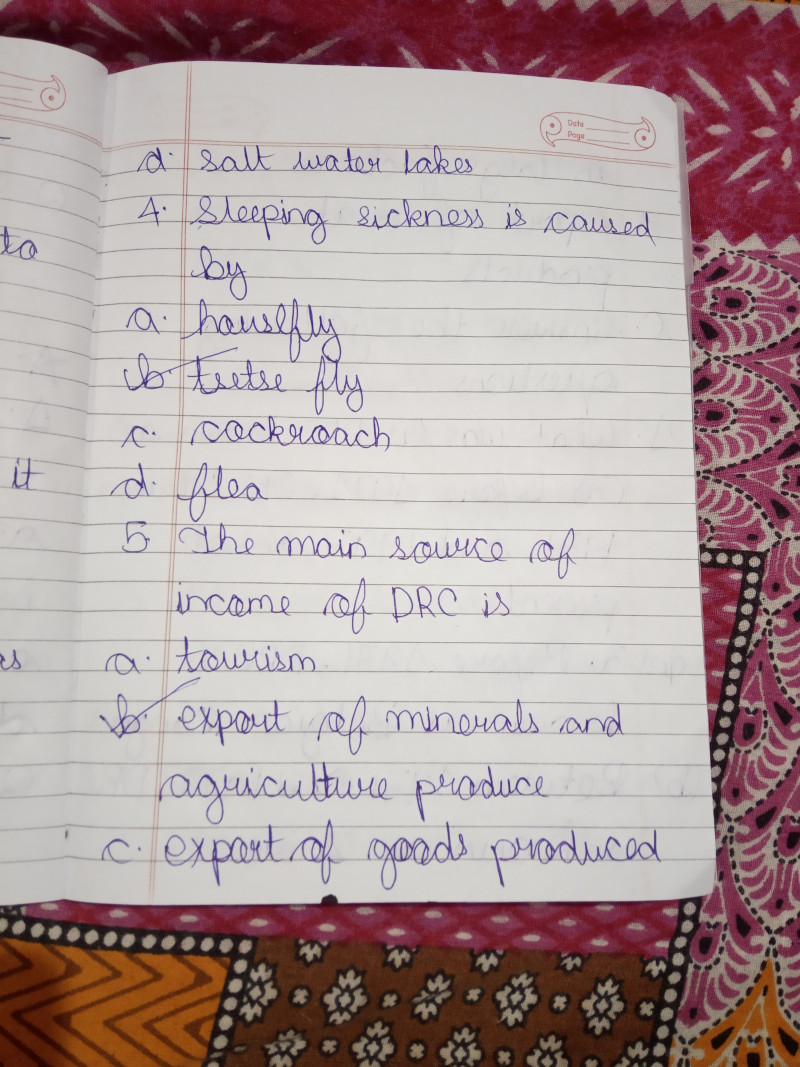 Date
Page
to
it
as
d. salt water lakes
4. Sleeping sickness is caused
by
a. housefly
b. tsetse fly
c. cockroach
d. flea
5 The main source of
income of DRC is
a. tourism
b. export of minerals and
agriculture produce
c. export of goods produced